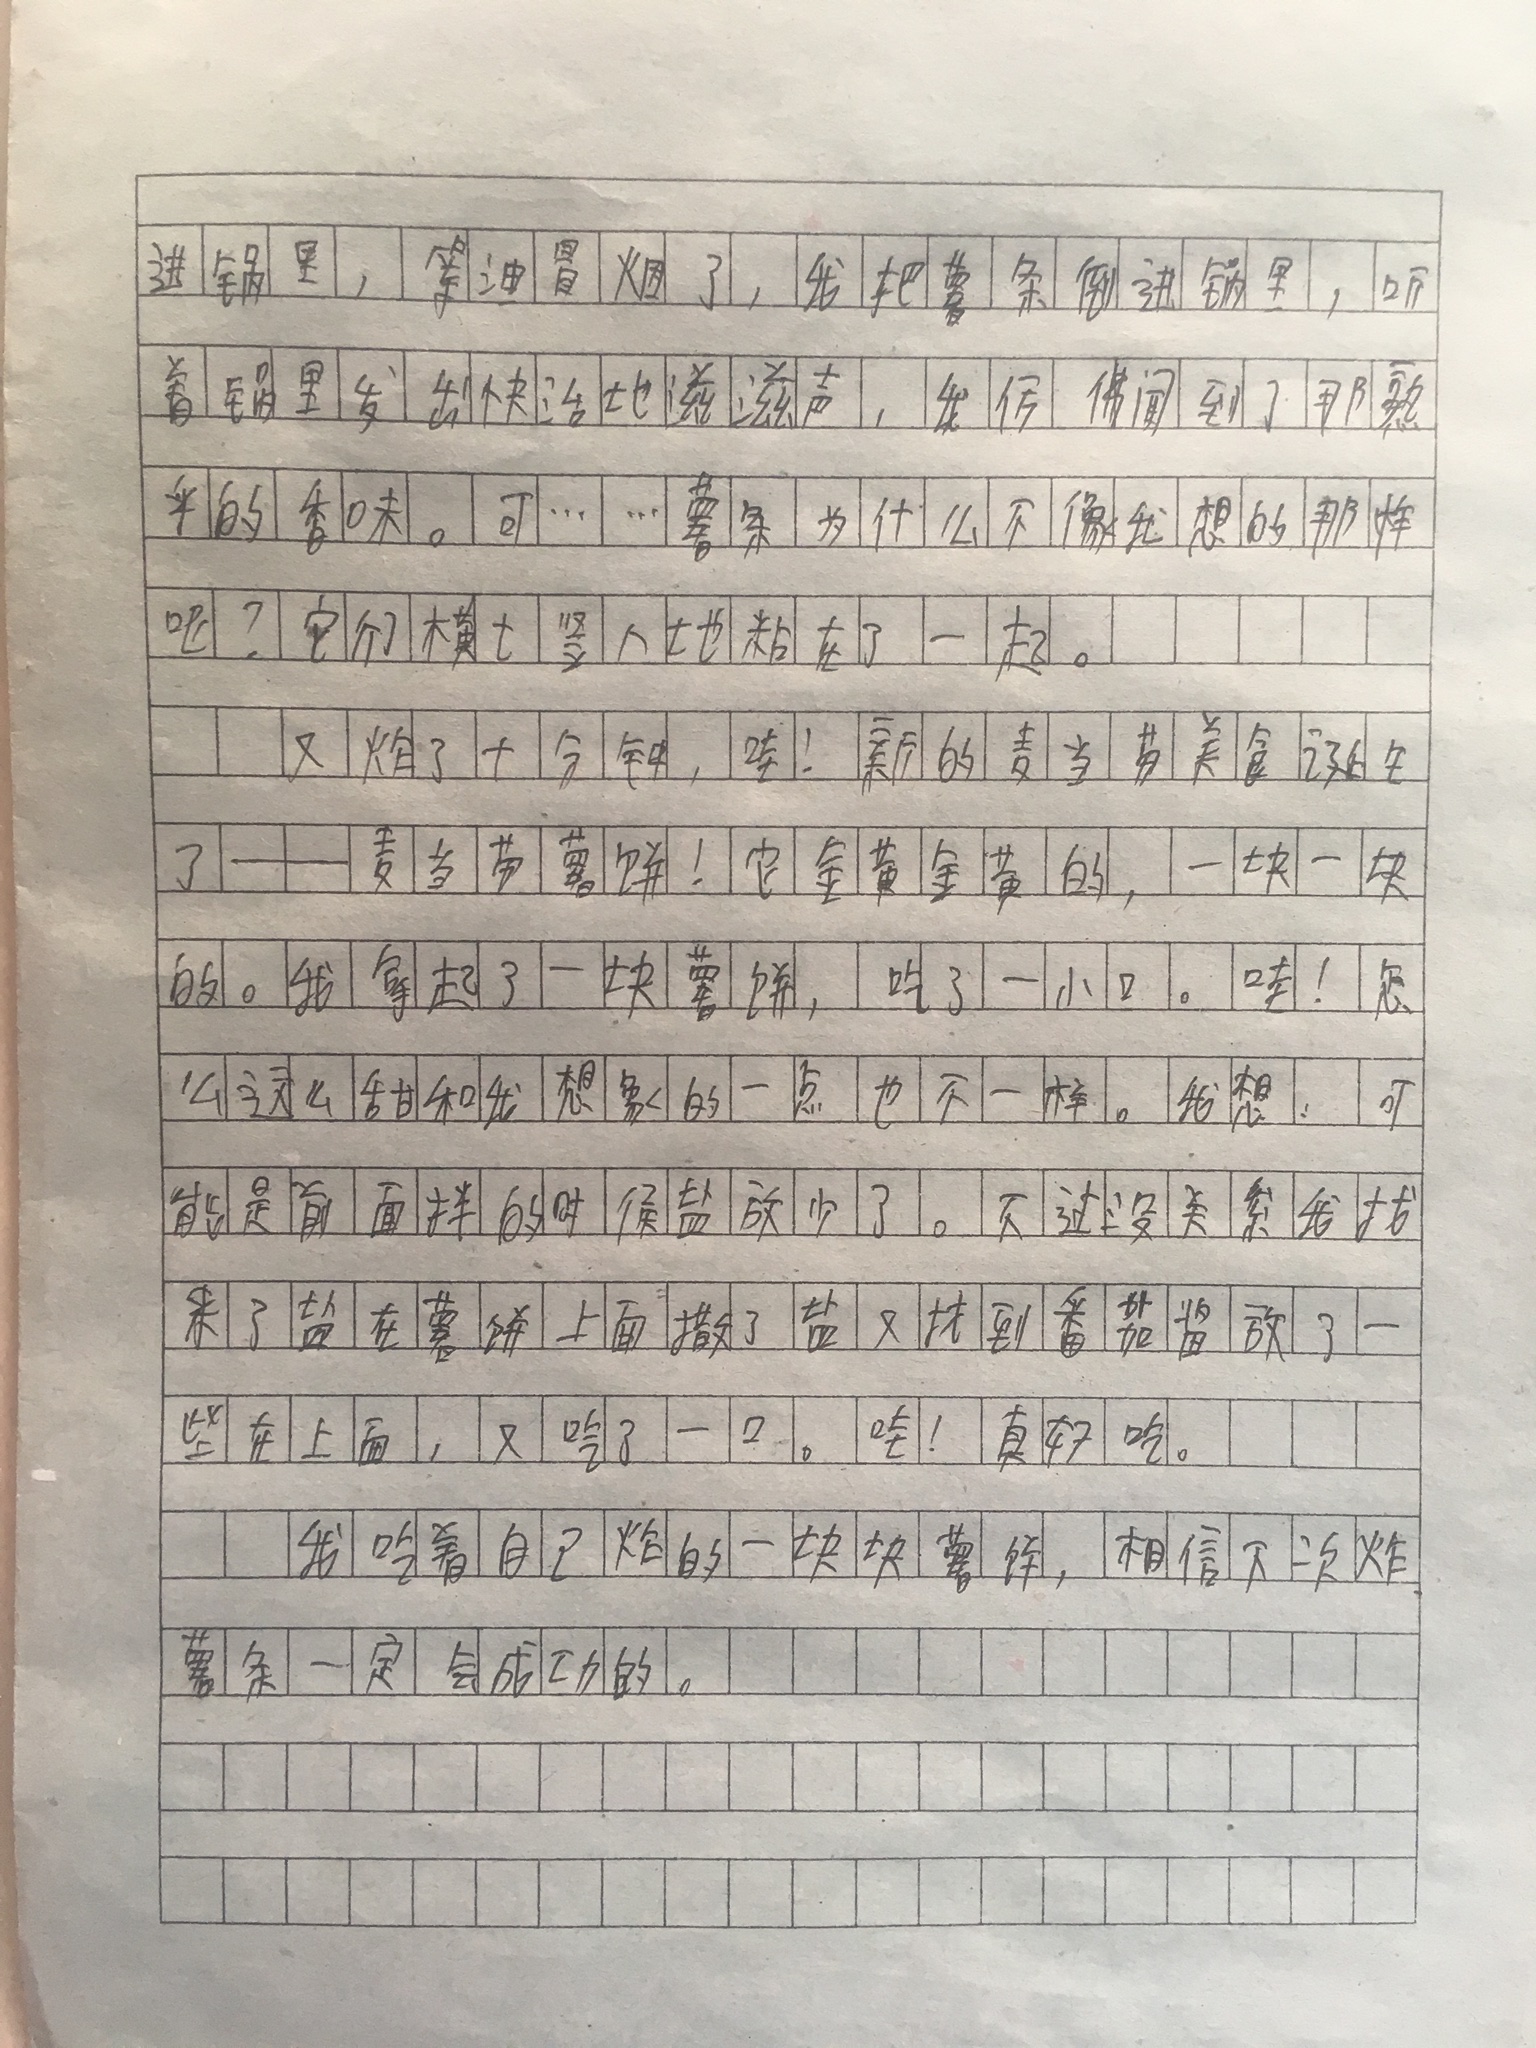 进锅里，等油冒烟了，我把薯条倒进锅里，听
着锅里发出快活地滋滋声，我仿佛闻到了那熟
乎的香味。可……薯条为什么不像我想的那样
呢？它们横七竖八地粘在了一起。
又炸了十分钟，哇！新的麦当劳美食诞生
了——麦当劳薯饼！它金黄金黄的，一块一块
的。我拿起了一块薯饼，吃了一小口。哇！怎
么这么甜和我想象的一点也不一样。我想：可
能是前面拌的时候盐放少了。不过没关系我找
来了盐在薯饼上面撒了盐又找到番茄酱放了一
些在上面，又吃了一口。哇！真好吃。
我吃着自己炸的一块块薯饼，相信下次炸
薯条一定会成功的。